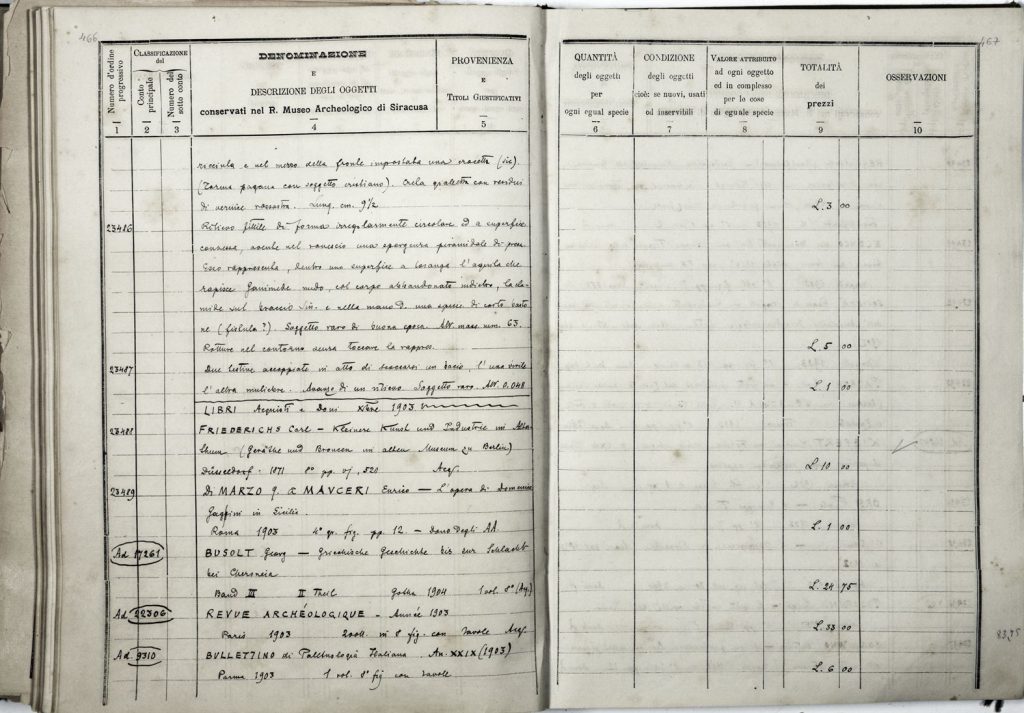 466
Numero d'ordine progressivo
CLASSIFICAZIONE del
Conto principale
Numero del sotto conto
DENOMINAZIONE
E
DESCRIZIONE DEGLI OGGETTI
conservati nel R. Museo Archeologico di Siracusa
PROVENIENZA
E
TITOLI GIUSTIFICATIVI
1 2 3 4 5
e nel mezzo della fronte impostata una crocetta (sic).
(Forma pagana con soggetto cristiano). Creta giallastra con residui
di vernice rossastra. Lung. cm. 9½
23486 Rilievo fittile di forma irregolarmente circolare ed a superficie
convessa, avente nel rovescio una sporgenza piramidale di presa.
Esso rappresenta, dentro una superficie a losanga l'aquila che
rapisce Ganimede nudo, col corpo abbandonato indietro, la cla-
mide sul braccio sin. e nella mano D. una specie di corto basto-
ne (fistula?). Soggetto raro di buona epoca. Alt. mass. mm. 63.
Rotture nel contorno senza toccare la rappres.
23487 Due testine accoppiate in atto di scoccarsi un bacio, l'una virile
l'altra muliebre. Avanzo di un rilievo. Soggetto raro. Alt. 0.048
LIBRI Acquisti e Doni Xbre 1903
23488 FRIEDERICHS Carl - Kleinere Kunst und Industrie im Alter-
thum (Geräthe und Broncen im alten Museum zu Berlin)
Düsseldorf. 1871 8° pp. 520 Acq.
23489 Di MARZO G. e MAUCERI Enrico - L'opera di Domenico
Gagini in Sicilia
Roma 1903 4° gr. fig. pp. 12 - dono degli AA.
Ad 17261 BUSOLT Georg - Griechische Geschichte bis zur Schlacht
bei Chaeroneia
Band III II Theil Gotha 1904 1 vol. 8° (Acq.)
Ad 22306 REVUE ARCHÉOLOGIQUE - Année 1903
Paris 1903 2 voll. in 8° fig. con tavole Acq.
Ad 9310 BULLETTINO di Paletnologia Italiana. An. XXIX (1903)
Parma 1903 1 vol. 8° fig. con tavole
467
QUANTITÀ
degli oggetti
per
ogni egual specie
CONDIZIONE
degli oggetti
cioè: se nuovi, usati
od inservibili
VALORE ATTRIBUITO
ad ogni oggetto
ed in complesso
per le cose
di eguale specie
TOTALITÀ
dei
prezzi
OSSERVAZIONI
6 7 8 9 10
L. 3 00
L. 5 00
L. 1 00
L. 10 00
L. 1 00
L. 24 75
L. 33 00
83,75
L. 6 00